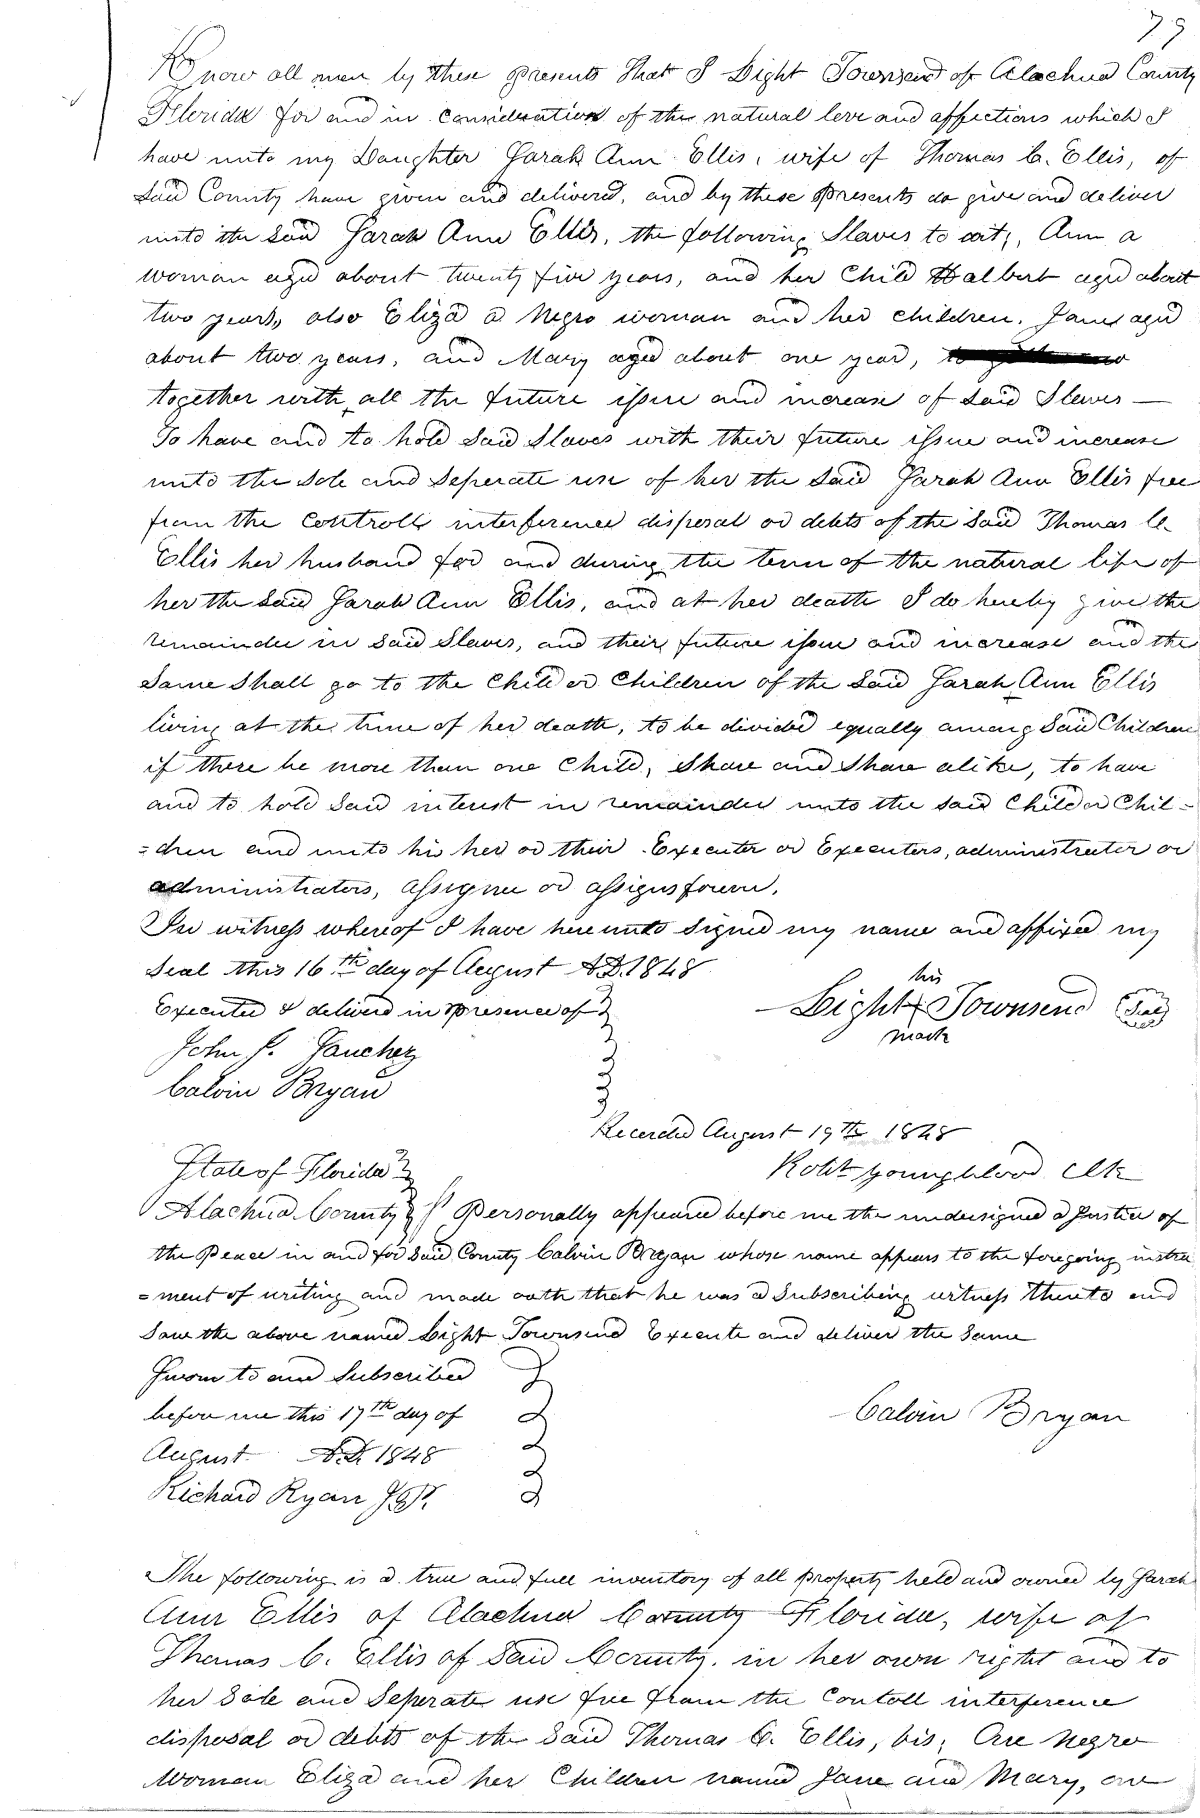 79
Know all men by these presents that I Light Townsend of Alachua County
Florida for and in consideration of the natural love and affections which I
have unto my Daughter Sarah Ann Ellis, wife of Thomas C. Ellis, of
said County have given and delivered, and by these presents do give and deliver
unto the said Sarah Ann Ellis, the following Slaves to wit; Ann a
woman aged about twenty five years, and her Child Halbert aged about
two years, also Eliza a Negro woman and her children, Jane aged
about two years, and Mary aged about one year,
together with all the future issue and increase of said Slaves —
To have and to hold said Slaves with their future issue and increase
unto the sole and seperate use of her the said Sarah Ann Ellis free
from the controll interference disposal or debts of the said Thomas C.
Ellis her husband for and during the term of the natural life of
her the said Sarah Ann Ellis, and at her death I do hereby give the
remainder in said Slaves, and their future issue and increase and the
same shall go to the Child or Children of the said Sarah Ann Ellis
living at the time of her death, to be divided equally among said Children
if there be more than one Child, share and share alike, to have
and to hold said interest in remainder unto the said Child or Chil=
=dren and unto his her or their Executer or Executers, administrater or
administraters, assignee or assigns forever.
In witness whereof I have hereunto signed my name and affixed my
seal this 16th day of August A.D. 1848
Executed & delivered in presence of
his
Light X Townsend Seal
mark
John J. Sanchez
Calvin Bryan
Recorded August 19th 1848
Robt Youngblood Clk
State of Florida
Alachua County Personally appeared before me the undersigned a Justice of
the Peace in and for said County Calvin Bryan whose name appears to the foregoing instru
=ment of writing and made oath that he was a Subscribing witness thereto and
saw the above named Light Townsend Execute and deliver the same
Sworn to and Subscribed
before me this 17th day of
Calvin Bryan
August A.D. 1848
Richard Ryan J.P.
The following is a true and full inventory of all property held and owned by Sarah
Ann Ellis of Alachua County Florida, wife of
Thomas C. Ellis of said County, in her own right and to
her sole and seperate use free from the contoll interference
disposal or debts of the said Thomas C. Ellis, vis; One negro
Woman Eliza and her Children named Jane and Mary, one